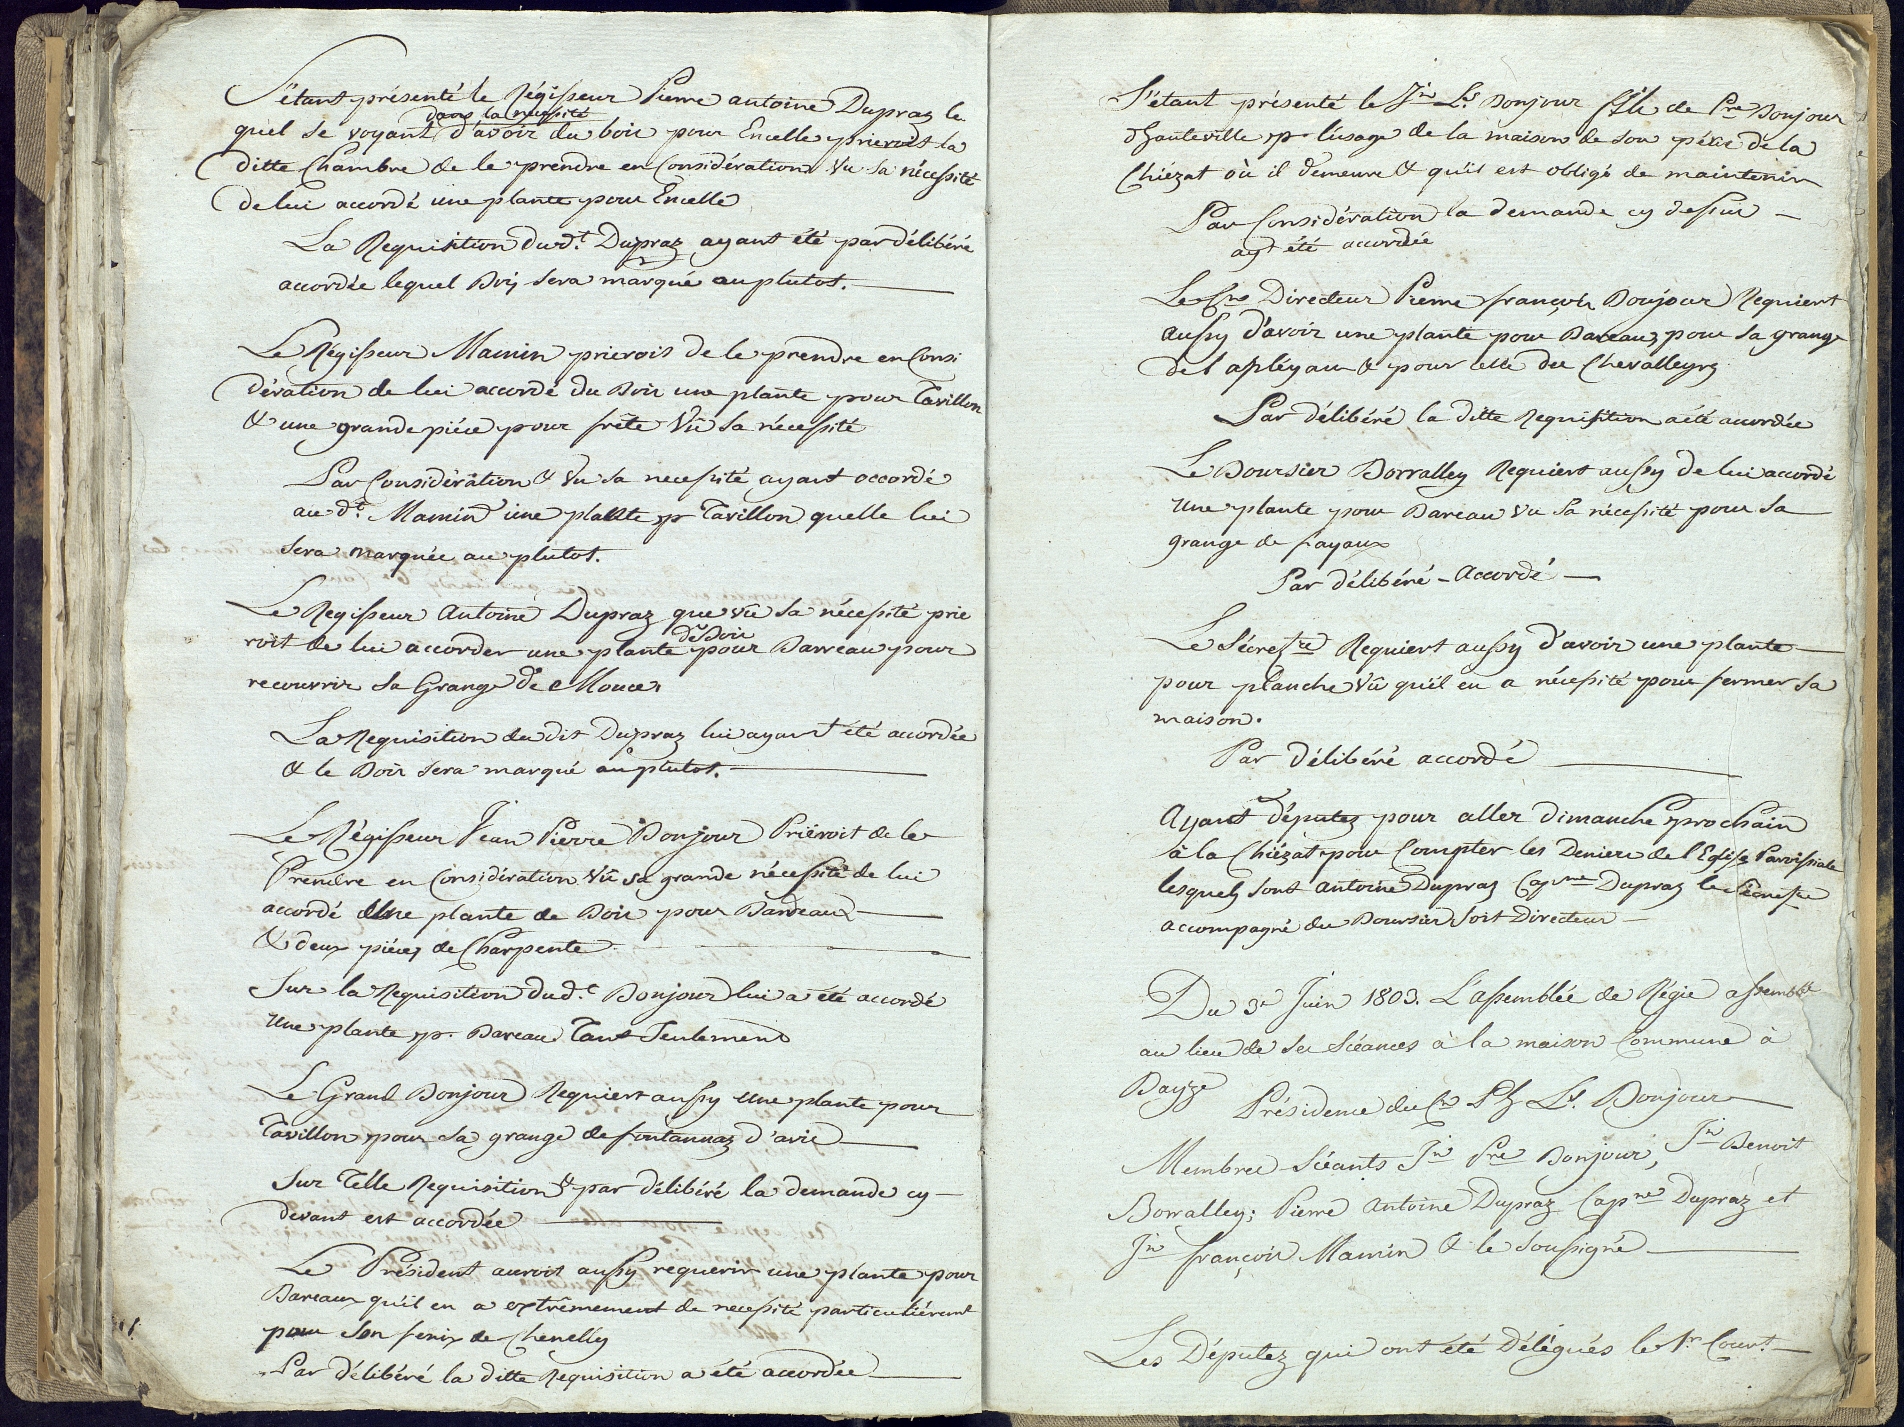 S'étant présenté le Régisseur Pierre antoine Dupraz le
dans la necessité
quel se voyant d'avoir du bois pour Encelle prieroit la
ditte Chambre de le prendre en Considération Vu sa nécessité
de lui accordé une plante pour Encelle
La Requisition dud.t Dupraz ayant été par délibéré
accordée lequel Bois sera marqué au plutot.
Le Régisseur Mamin prierois de le prendre en Consi
dération de lui accordé du Bois une plante pour Tavillon
& une grande piéce pour frête Vû sa nécessité
Par Considération & Vu sa necessité ayant accordé
au d.t Mamin une plante p.r Tavillon quelle lui
sera marquée au plutot.
Le Regisseur Antoine Dupraz que vû sa nécessité prie
de Bois
roit de lui accorder une plante pour Barreau pour
recouvrir sa Grange de Mouces
La Requisition du dit Dupraz lui ayant été accordée
& le Bois sera marqué au plutot.
Le Régisseur Jean Pierre Bonjour Prieroit de le
Prendre en Considération Vû sa grande nécessité de lui
accordé Une plante de Bois pour Bardeaux
& deux piéces de Charpente
Sur la Requisition dud.t Bonjour lui a été accordé
Une plante p.r Bareau Tant Seulement
Le Grand Bonjour Requiert aussy une plante pour
Tavillon pour sa grange de fontannaz d'avis
Sur Telle Requisition & par délibéré la demande cy
devant est accordée
Le Président auroit aussy requerir une plante pour
Bareaux qu'il en a extrêmement de necessité particuliérement
pour son fenix de Chenelly
Par délibéré la ditte Requisition a été accordée
S'étant présenté le Jn Ls Bonjour fils de Pre Bonjour
d'hauteville p.r l'usage de la maison de son pére de la
Chiézat où il demeure & qu'il est obligé de maintenir
Par Considération la demande cy dessus
ayt été accordée
Le Cn Directeur Pierre françois Bonjour Requiert
aussy d'avoir une plante pour Bareaux pour sa grange
de l apléyaux & pour celle du Chevalleyrz
Par délibéré la ditte Requisition a été accordée
Le Boursier Borralley Requiert aussy de lui accordé
Une plante pour Bareau Vu sa nécessité pour sa
grange de fayaux
Par délibéré - Accordé
Le Sécretre Requiert aussy d'avoir une plante
pour planche Vû qu'il en a nécessité pour fermer sa
maison.
Par délibéré accordé
Ayant députez pour aller dimanche prochain
à la Chiézat pour Compter les Deniers de l'Eglise Paroissiale
lesquels sont Antoine Dupraz Capne Dupraz le
accompagné du Boursier soit Directeur
Du 3e Juin 1803. L'assemblée de Régie assemblé
au lieu de ses Séances à la maison Commune à
Bayze
Présidence du Cn Ph Ls. Bonjour
Membres Séants Jn Pre Bonjour, Jn Benoit
Borralley; Pierre Antoine Dupraz Capne Dupraz et
Jn françois Mamin & le soussigné
Les Députez qui ont été Délégués le 1r Court